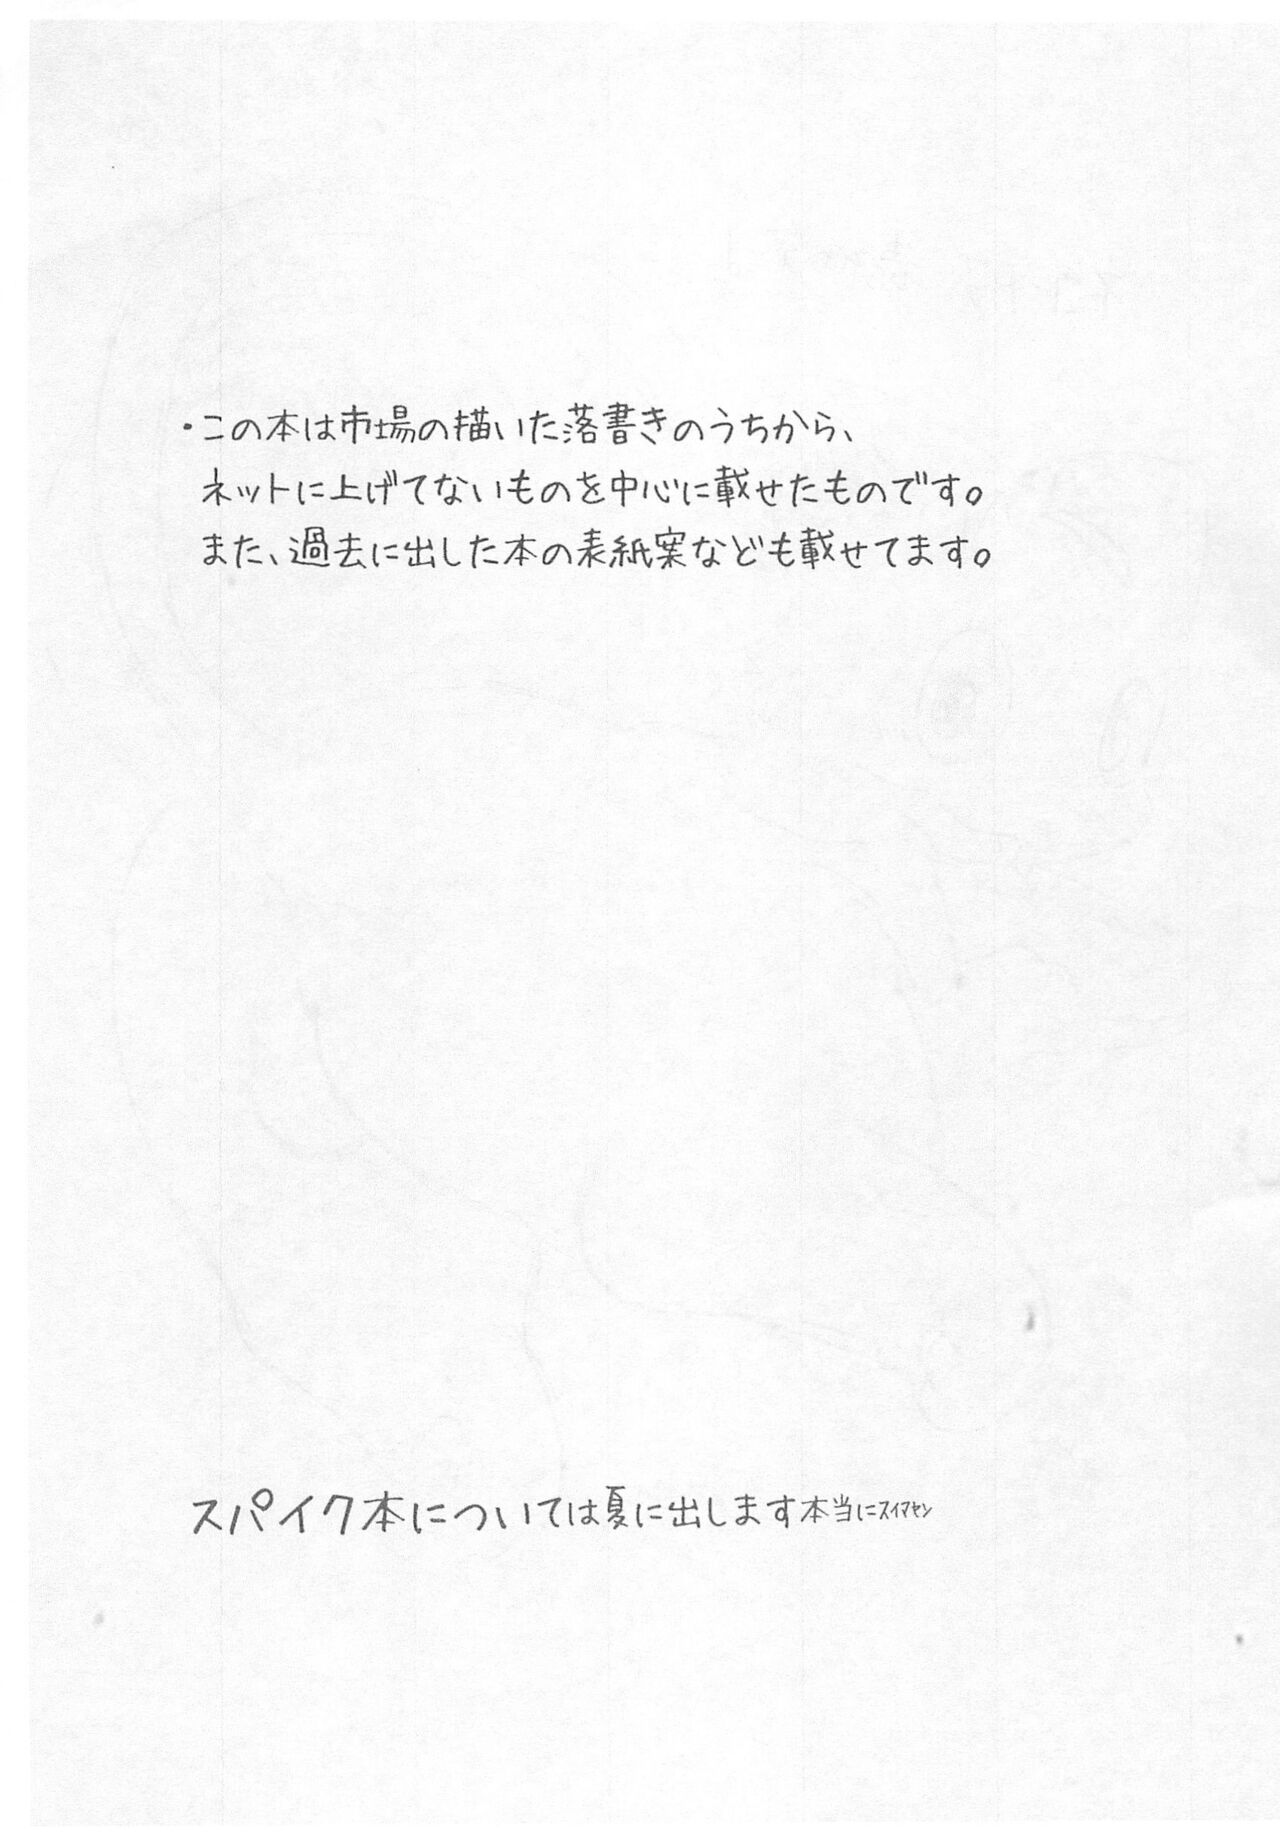 ・この本は市場の描いた落書きのうちから、
ネットに上げてないものを中心に載せたものです。
また、過去に出した本の表紙案なども載せてます。
スパイク本については夏に出します本当にｽｲﾏｾﾝ